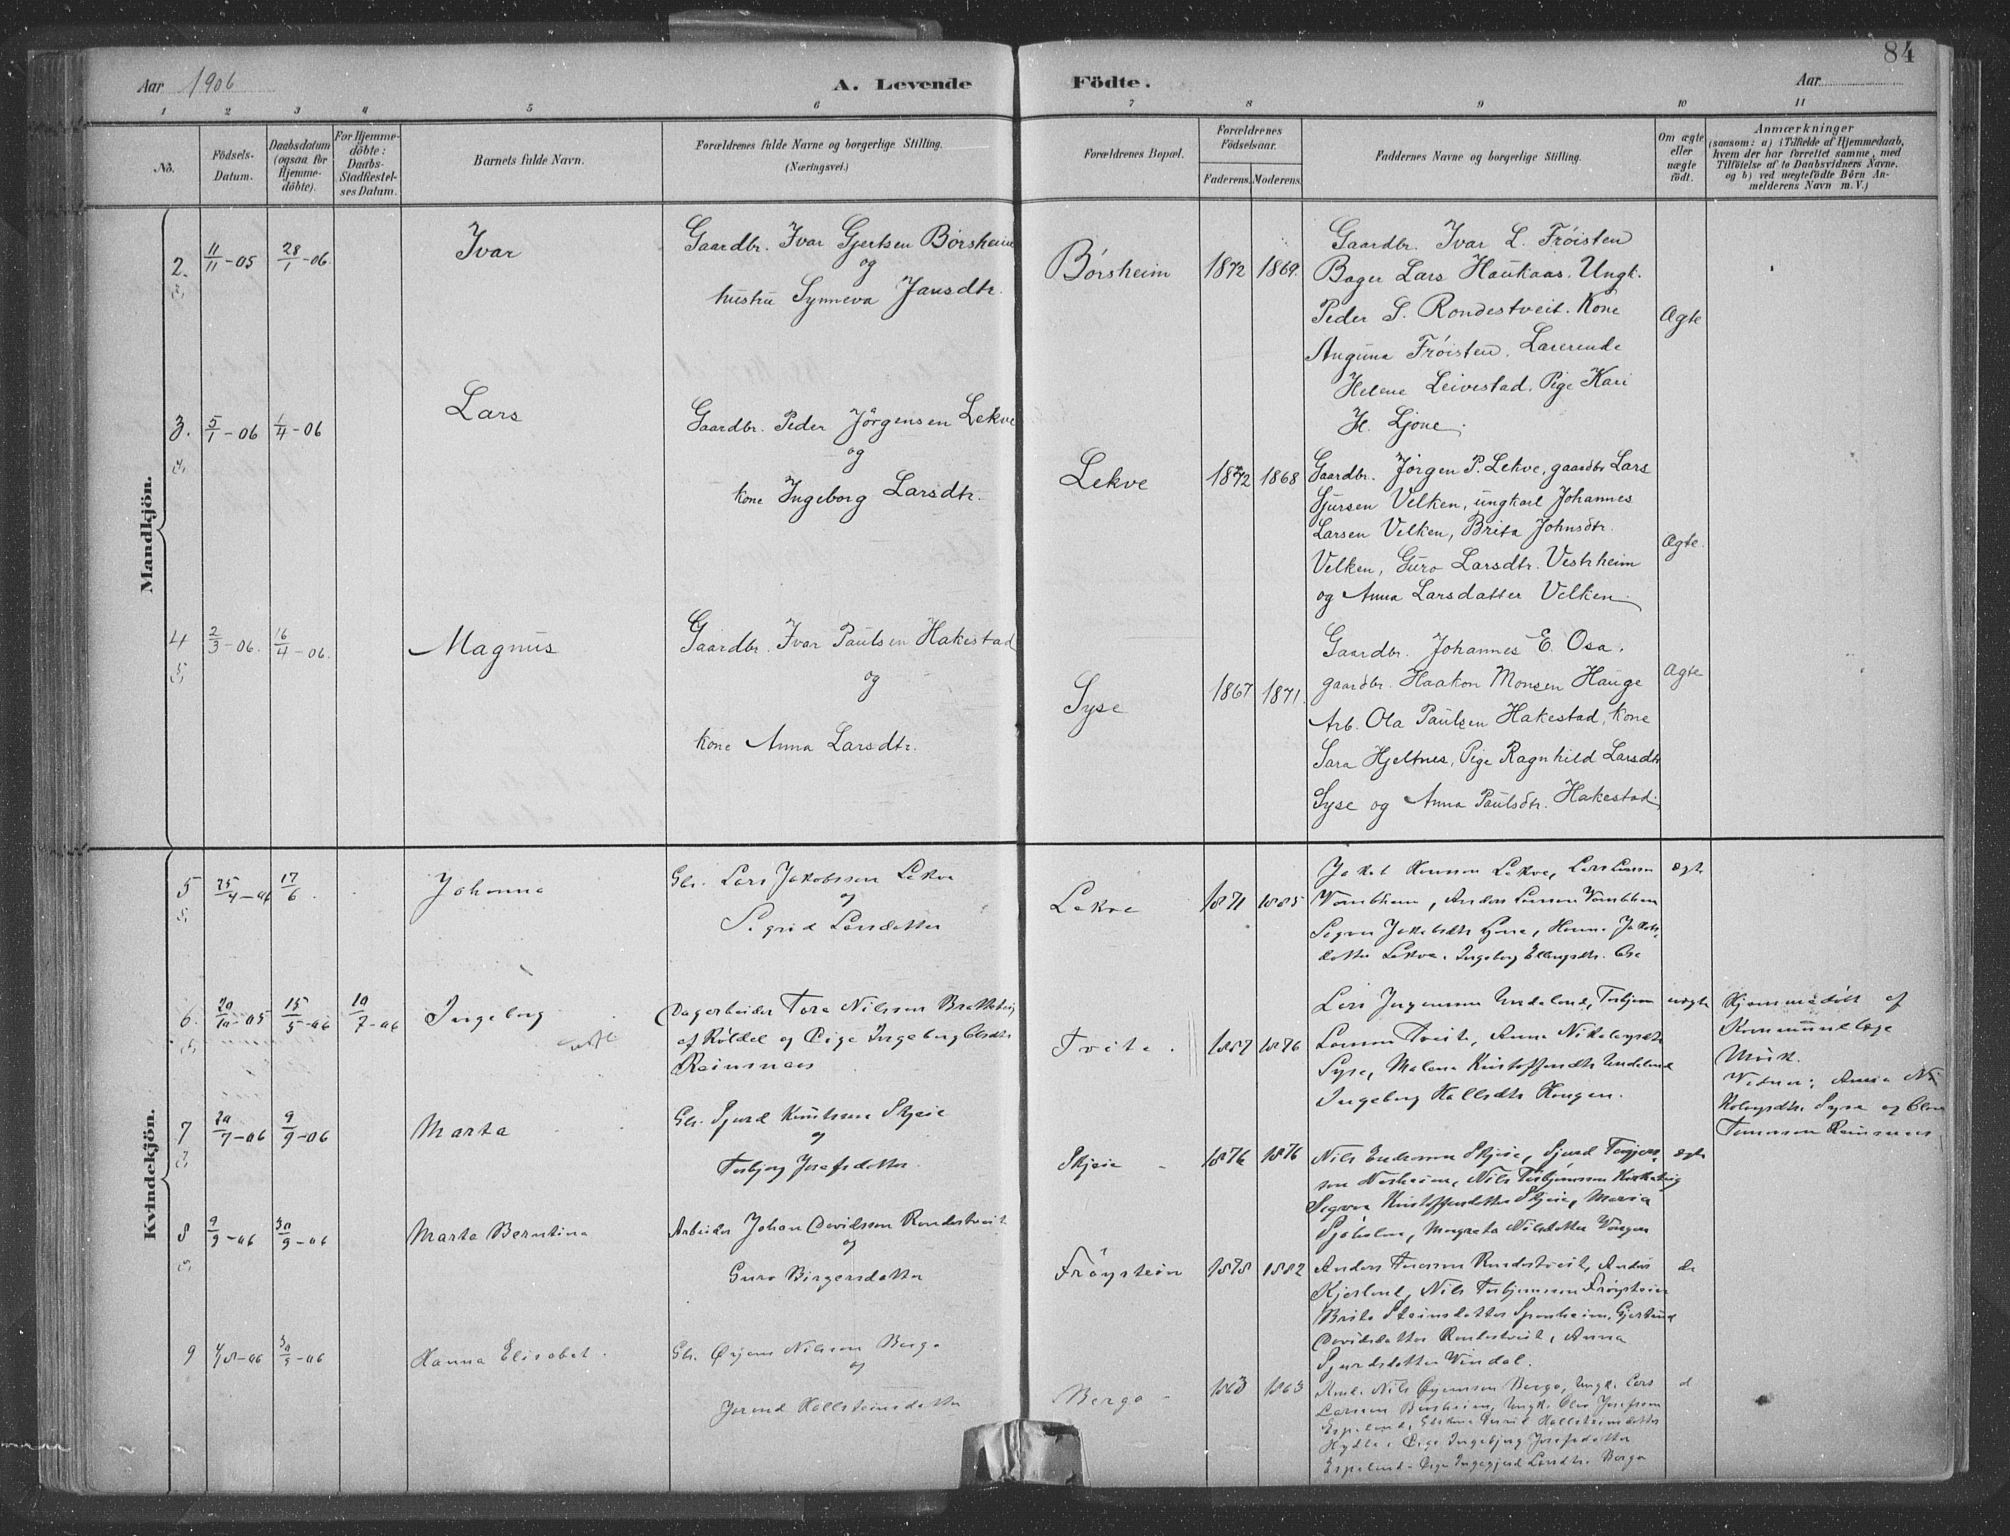 84
Aar 1906
A. Levende Födte.
Aar
1 2 3 4 5 6 7 8 9 10 11
No.
Födsels-Datum.
Daabsdatum (ogsaa for Hjemme-döbte).
For Hjemme-döbte: Daabs-Stadfæstel-ses Datum.
Barnets fulde Navn.
Forældrenes fulde Navne og borgerlige Stilling. (Næringsvei.)
Forældrenes Bopæl.
Forældrenes Födselsaar.
Faderens. Moderens.
Faddernes Navne og borgerlige Stilling.
Om ægte eller uægte födt.
Anmærkninger
(saasom: a) i Tilfælde af Hjemmedaab, hvem der har forrettet samme, med Tilföielse af to Daabsvidners Navne, og b) ved uægtefödte Börn Anmelderens Navn m. V.)
Mandkjön.
2. 11/11-05 28/1-06. Ivar
Gaardbr. Ivar Gjertsen Børsheim
og
hustru Synneva Jansdtr.
Børsheim 1872 1869.
Gaardbr. Ivar L. Frøisten
Bager Lars Haukaas. Ungk.
Peder S. Rondestveit. Kone
Anguna Frøisten. Lærerinde
Helene Leivestad. Pige Kari
H. Ljone.
Ægte
3. 5/1-06 1/4-06 Lars
Gaardbr. Peder Jörgensen Lekve
og
kone Ingeborg Larsdtr.
Lekve 1872 1868
Gaardbr. Jørgen P. Lekve, gaardbr Lars
Sjursen Velken, ungkarl Johannes
Larsen Velken, Brita Johnsdtr.
Velken, Guro Larsdtr. Vestrheim
og Anna Larsdatter Velken.
Ægte.
4 2/3-06. 16/4-06. Magnus
Gaardbr. Ivar Paulsen Hakestad
og
kone Anna Larsdtr.
Syse 1867 1871.
Gaardbr. Johannes E. Osa.
gaardbr. Haakon Monsen Hauge
Arb. Ola Paulsen Hakestad, kone
Sara Hjeltnes, Pige Ragnhild Larsdtr
Syse og Anna Paulsdtr. Hakestad.
Ægte
Kvindekjön.
5 25/4-06 17/6. Johanna
Gbr. Lars Jakobsson Lekve
og
Sigrid Larsdatter
Lekve 1871 1885
Lekve, Lars Larsson
Anders Larsson
Jakobs-
datter Lekve. Ingeborg
ægte
6. 15/5-06 10/7-06 Ingeborg
Dagarbeider Tore Nilsson Bratteteig
af Röldal og Pige Ingeborg Olsdtr
Reinsnes
Tveite. 1857 1876
Lars Jørgensson Undeland, Torbjørn
Larsson Tveite, Anna Nikolaysdtr
Syse, Malena Kristoffersdtr Undeland
Ingeborg Hallsdtr Haugen.
uægte
Hjemmedøbt af
Kommunelæge
Munk.
Vidner: Anna Ni-
kolaysdtr. Syse og Olav
Reinsnes
7 20/7-06 9/9-06 Marta
Gbr. Sjurd Knutsson Skjeie
og
Torbjørg Josefsdatter.
Skjeie 1876 1876
Nils Endresson Skjeie, Sjurd Torgjers-
son Nesheim, Nils Torbjørnsson
Kristoffersdatter Skjeie, Maria
Sjøholm, Margreta Nilsdatter
ægte
8 9/9-06 30/9-06 Marta Berntina
Arbeider Johan Davidsson Rondestveit
og
Guro Birgersdatter
Frøystein 1878 1882
Anders Rondestveit, Anders
Kjerland, Nils Torbjørnsson Frøystein
Brita Steinsdatter Sponheim, Gjertrud
Davidsdatter Rondestveit, Anna
Sjurdsdatter Vindal.
do
9 4/8-06 30/9-06 Hanna Elisabet.
Gbr. Ørjans Nilsson Bergo
og
Jorund Hallsteinsdatter
Bergo 1863 1863
Nils Ørjansson Bergo, Ungk. Lars
Larsson Børsheim, Ungk. Olav Josefsson
Espeland, Hallsteinsdatter
Hydle, Pige Ingebjørg Josefsdatter
Espeland. Pige Ingegjerd Larsdtr. Bergo